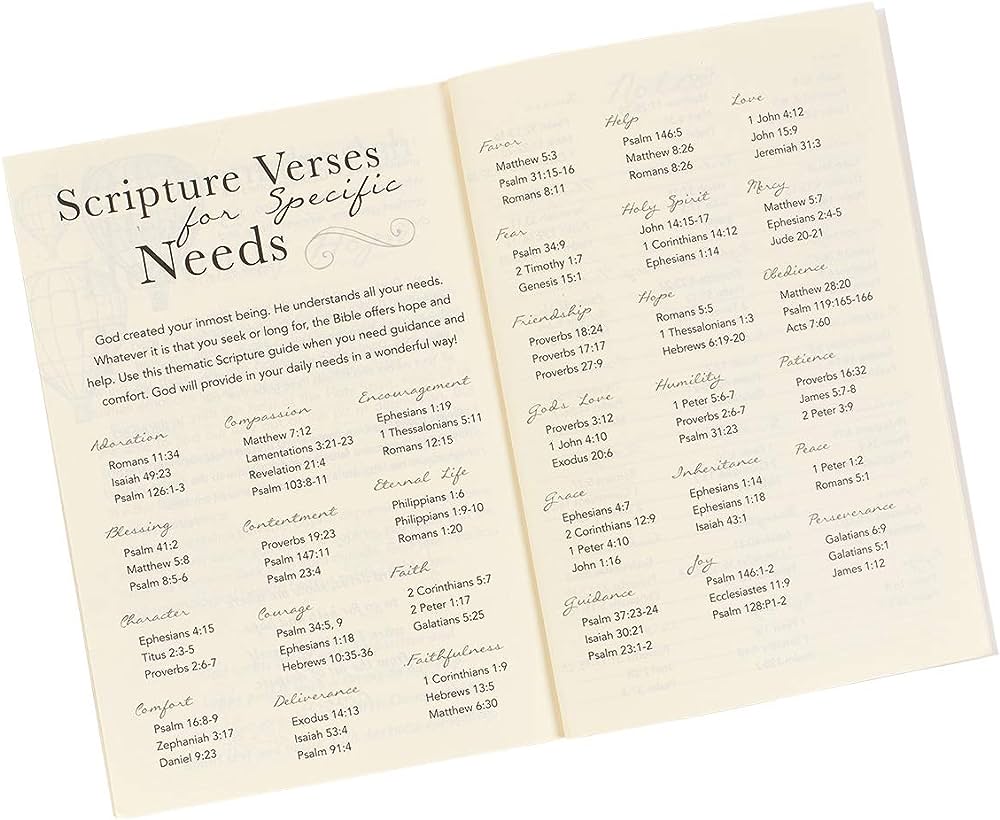 Scripture Verses
for Specific
Needs
God created your inmost being. He understands all your needs.
Whatever it is that you seek or long for, the Bible offers hope and
help. Use this thematic Scripture guide when you need guidance and
comfort. God will provide in your daily needs in a wonderful way!
Adoration
Romans 11:34
Isaiah 49:23
Psalm 126:1-3
Blessing
Psalm 41:2
Matthew 5:8
Psalm 8:5-6
Character
Ephesians 4:15
Titus 2:3-5
Proverbs 2:6-7
Comfort
Psalm 16:8-9
Zephaniah 3:17
Daniel 9:23
Compassion
Matthew 7:12
Lamentations 3:21-23
Revelation 21:4
Psalm 103:8-11
Contentment
Proverbs 19:23
Psalm 147:11
Psalm 23:4
Courage
Psalm 34:5, 9
Ephesians 1:18
Hebrews 10:35-36
Deliverance
Exodus 14:13
Isaiah 53:4
Psalm 91:4
Encouragement
Ephesians 1:19
1 Thessalonians 5:11
Romans 12:15
Eternal Life
Philippians 1:6
Philippians 1:9-10
Romans 1:20
Faith
2 Corinthians 5:7
2 Peter 1:17
Galatians 5:25
Faithfulness
1 Corinthians 1:9
Hebrews 13:5
Matthew 6:30
Favor
Matthew 5:3
Psalm 31:15-16
Romans 8:11
Fear
Psalm 34:9
2 Timothy 1:7
Genesis 15:1
Friendship
Proverbs 18:24
Proverbs 17:17
Proverbs 27:9
Gods Love
Proverbs 3:12
1 John 4:10
Exodus 20:6
Grace
Ephesians 4:7
2 Corinthians 12:9
1 Peter 4:10
John 1:16
Guidance
Psalm 37:23-24
Isaiah 30:21
Psalm 23:1-2
Help
Psalm 146:5
Matthew 8:26
Romans 8:26
Holy Spirit
John 14:15-17
1 Corinthians 14:12
Ephesians 1:14
Hope
Romans 5:5
1 Thessalonians 1:3
Hebrews 6:19-20
Humility
1 Peter 5:6-7
Proverbs 2:6-7
Psalm 31:23
Inheritance
Ephesians 1:14
Ephesians 1:18
Isaiah 43:1
Joy
Psalm 146:1-2
Ecclesiastes 11:9
Psalm 128:P1-2
Love
1 John 4:12
John 15:9
Jeremiah 31:3
Mercy
Matthew 5:7
Ephesians 2:4-5
Jude 20-21
Obedience
Matthew 28:20
Psalm 119:165-166
Acts 7:60
Patience
Proverbs 16:32
James 5:7-8
2 Peter 3:9
Peace
1 Peter 1:2
Romans 5:1
Perseverance
Galatians 6:9
Galatians 5:1
James 1:12